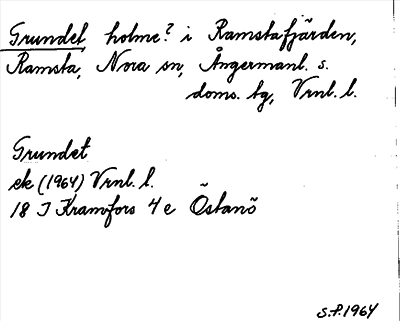 Grundet holme? i Ramstafjärden,
Ramsta, Nora sn, Ångermanl. s.
doms. tg, Vrnl. l.
Grundet
ek (1964) Vrnl. l.
18 I Kramfors 4 e Östanö
S.P. 1964